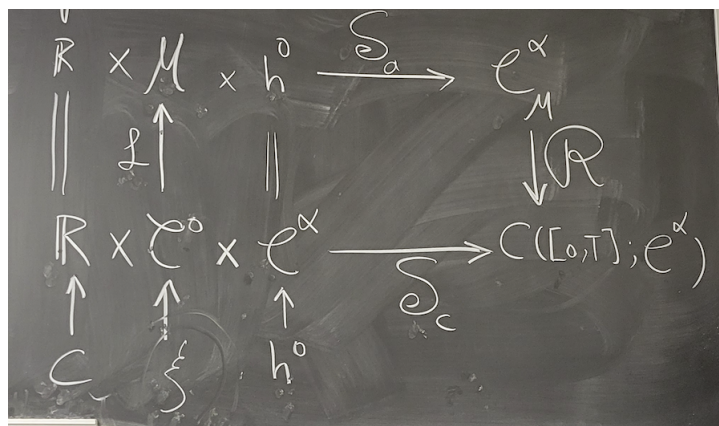 ℝ × ℳ × h⁰ ⟶ 𝒮ₐ 𝒞^α_ℳ
‖ ℒ ↑ ‖ ↓ ℛ
ℝ × 𝒞⁰ × 𝒞^α ⟶ 𝒮_c C([0,T]; 𝒞^α)
↑ ↑ ↑
C ξ h⁰